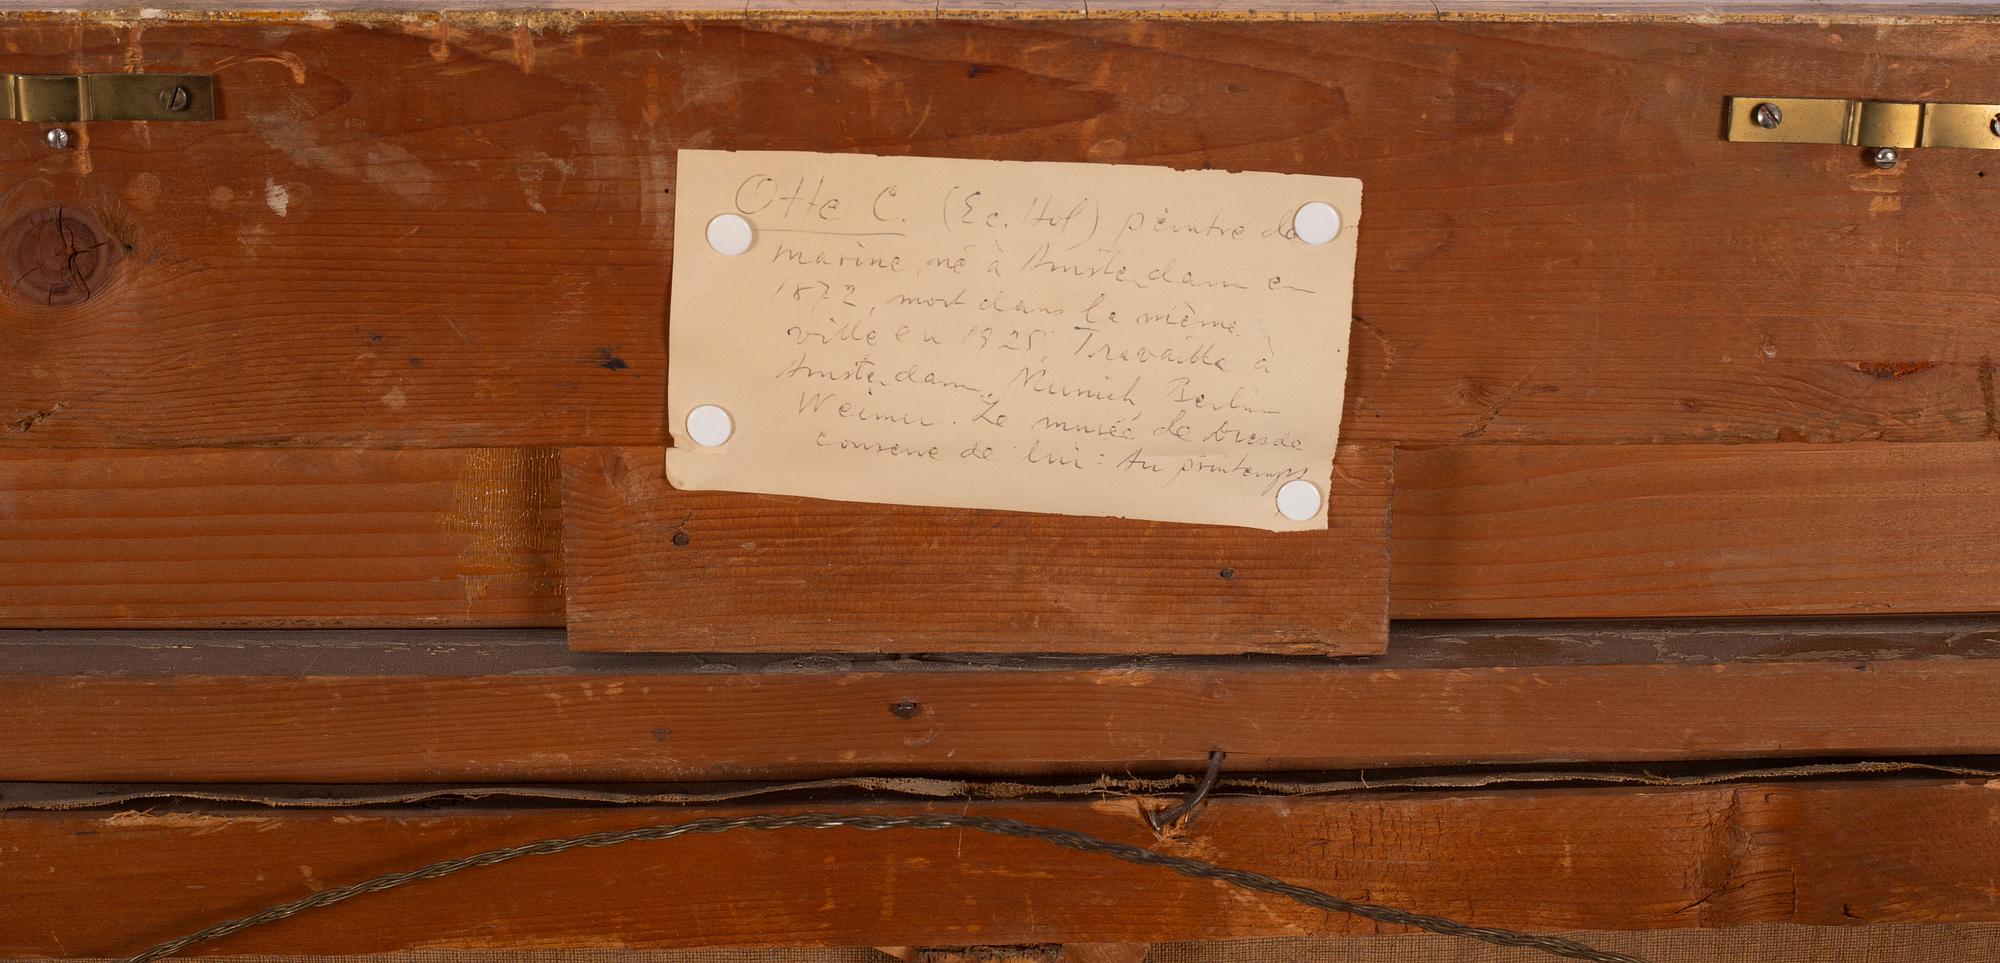 Otte C. (Ec. Hol) peintre de
marine, né à Amsterdam en
1872, mort dans la même
ville en 1925, Travailla à
Amsterdam, Munich, Berlin
Weimar. Le musée de Dresde
conserve de lui: Au printemps